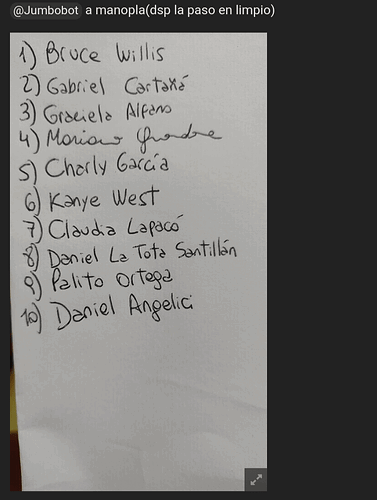 @Jumbobot a manopla(dsp la paso en limpio)
1) Bruce Willis
2) Gabriel Cartañá
3) Graciela Alfano
4) Mariano
5) Charly García
6) Kanye West
7) Claudia Lapacó
8) Daniel La Tota Santillán
9) Palito Ortega
10) Daniel Angelici